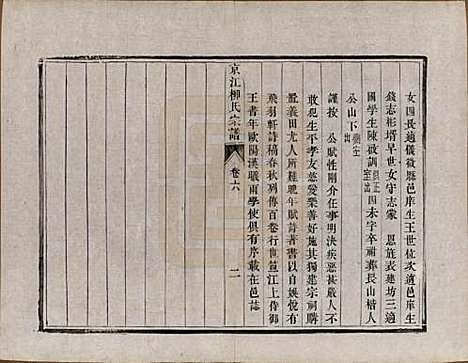 女四長適儀徵縣邑庠生王世位次適邑庠生
錢志彬壻早世女守志蒙 恩旌表建坊三適
國學生陳啟訓四未字卒祔葬長山楷人
公山下
謹按 公賦性剛介任事明決疾惡甚嚴人不
敢犯生平孝友慈愛樂善好施其獨建宗祠購
置義田尤人所難晚年賦詩著書以自娛悅有
飛羽軒詩稿春秋列傳百卷行世宣江上侍御
王書年歐陽漢職甫學使俱有序載在邑誌
京江柳氏宗譜
卷六
二